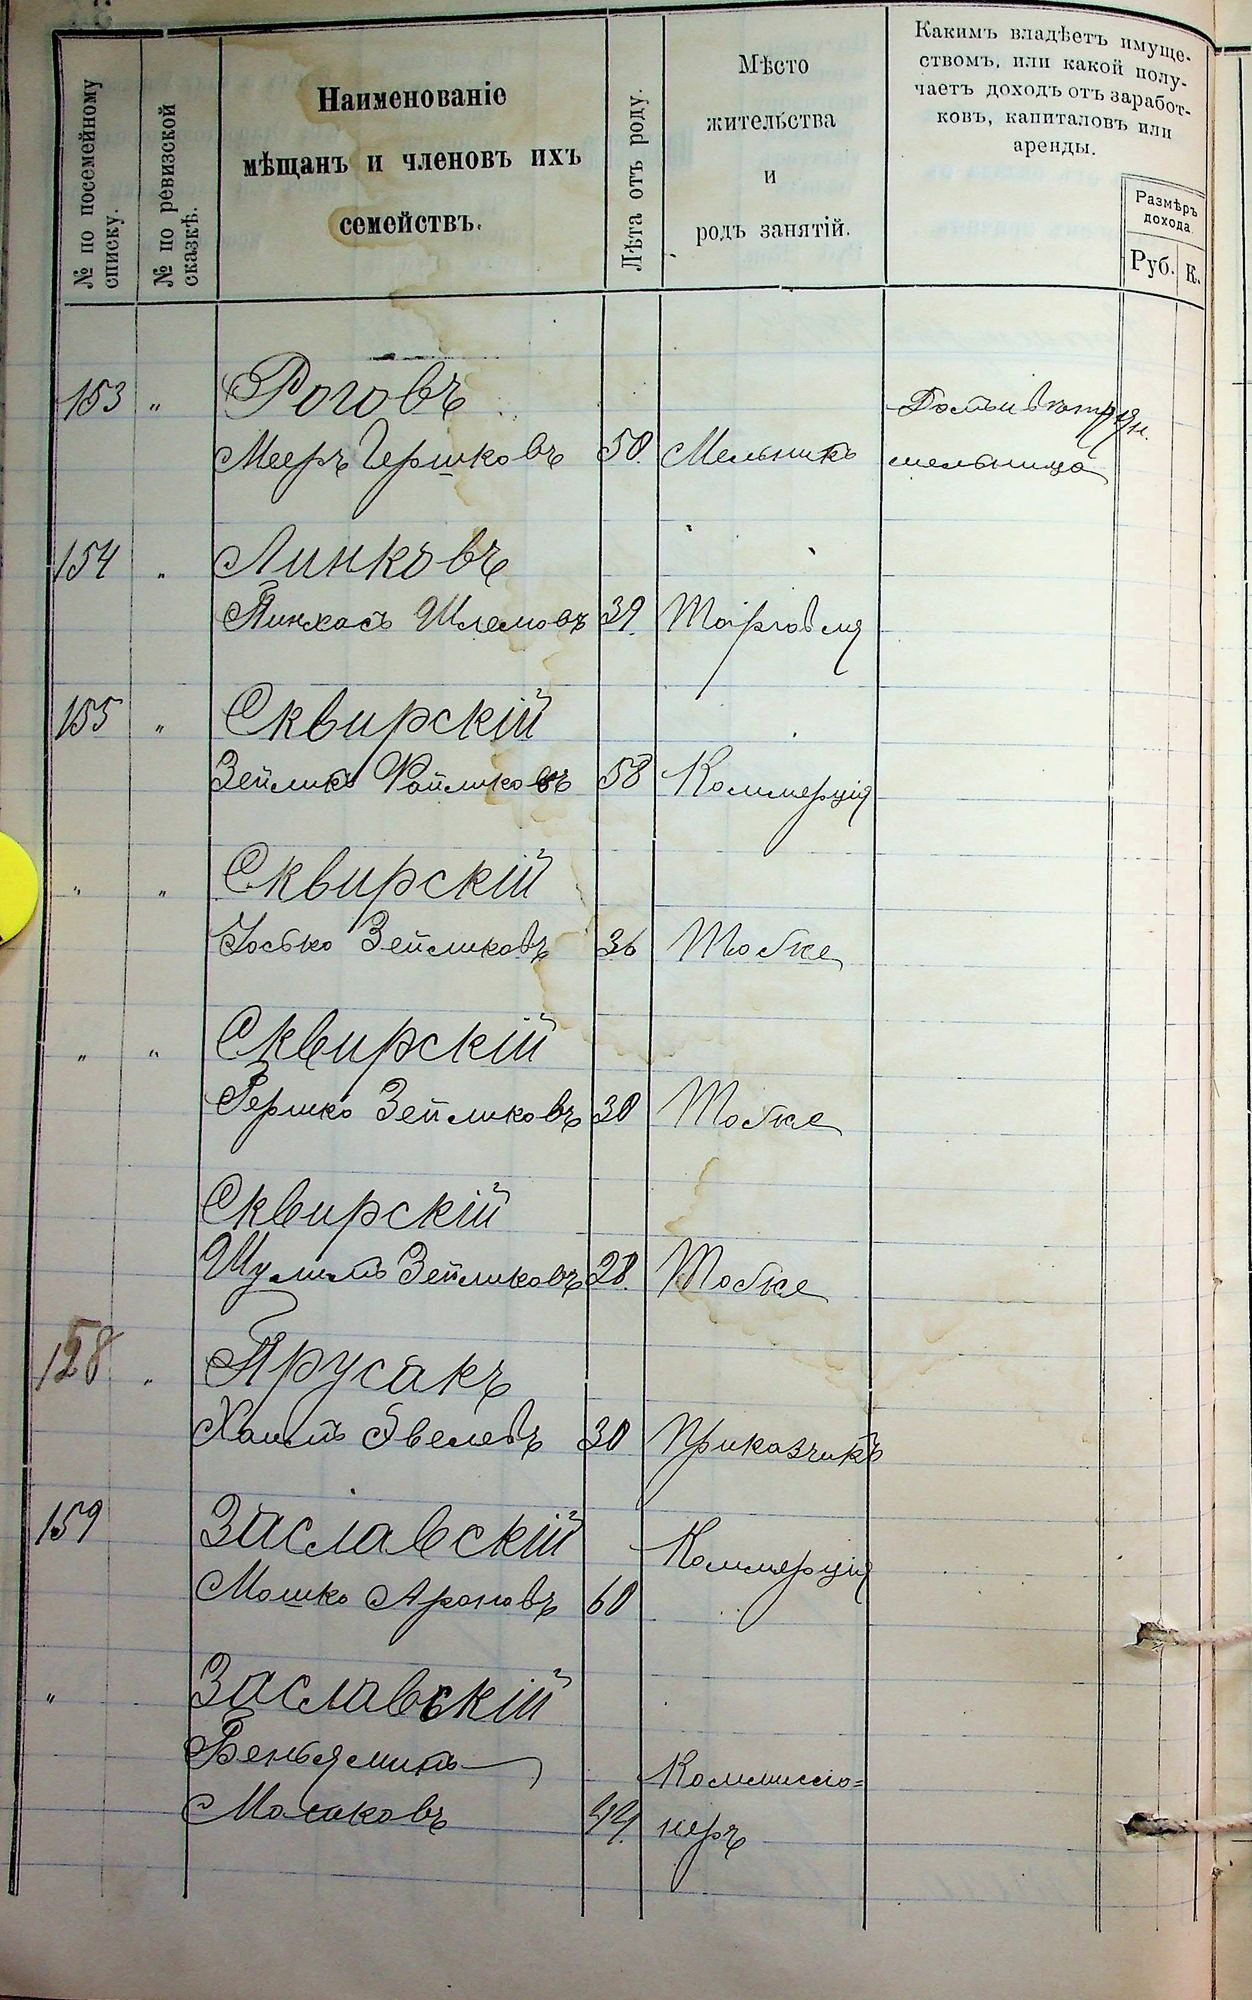 № по посемейному
списку.
№ по ревизской
сказкѣ.
Наименованіе
мѣщанъ и членовъ ихъ
семействъ.
Лѣта отъ роду.
Мѣсто
жительства
и
родъ занятій.
Какимъ владѣетъ имуще-
ствомъ, или какой полу-
чаетъ доходъ отъ заработ-
ковъ, капиталовъ или
аренды.
Размѣръ
дохода.
Руб. К.
153 " Роговъ
Мееръ Гершковъ 50. Мельникъ мельница
154 " Линковъ
Пинхасъ Шлемовъ 39. Торговля
155 " Сквирскій
Зейликъ Файликовъ 58 Коммерція
" " Сквирскій
Іосько Зейликовъ 36 Тоже
" " Сквирскій
Гершко Зейликовъ 30 Тоже
Сквирскій
Шулимъ Зейликовъ 28. Тоже
158 " Прусакъ
Хаимъ Эвелевъ 30 Приказчикъ
159 Заславскій Коммерція
Мошко Ароновъ 60
" Заславскій
Беньяминъ Коммиссіо=
Мошковъ 44. неръ